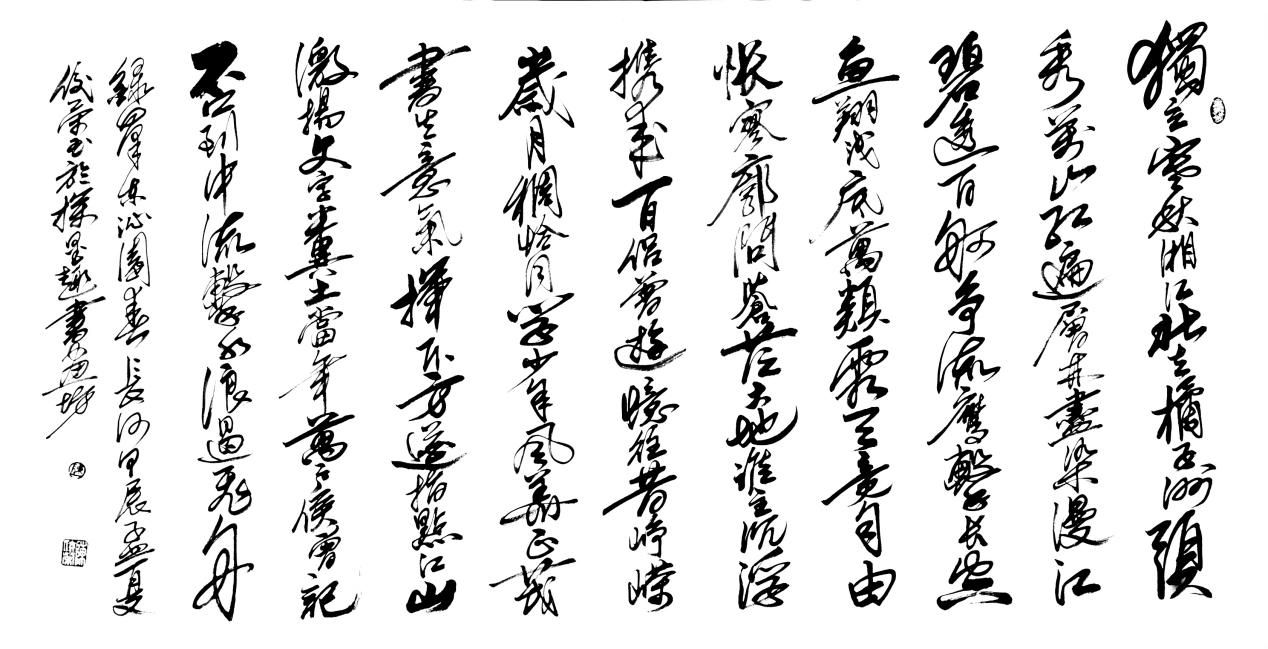 獨立寒秋湘江北去橘子洲頭
看萬山紅遍層林盡染漫江
碧透百舸爭流鷹擊長空
魚翔淺底萬類霜天竞自由
悵寥廓問蒼茫大地誰主沉浮
携來百侣曾遊憶往昔崢嶸
歲月稠恰同學少年風華正茂
書生意氣揮斥方遒指點江山
激揚文字糞土當年萬户侯曾記
否到中流擊水浪遏飛舟
錄澤東沁園春長沙甲辰孟夏
於探墨趣書畫坊